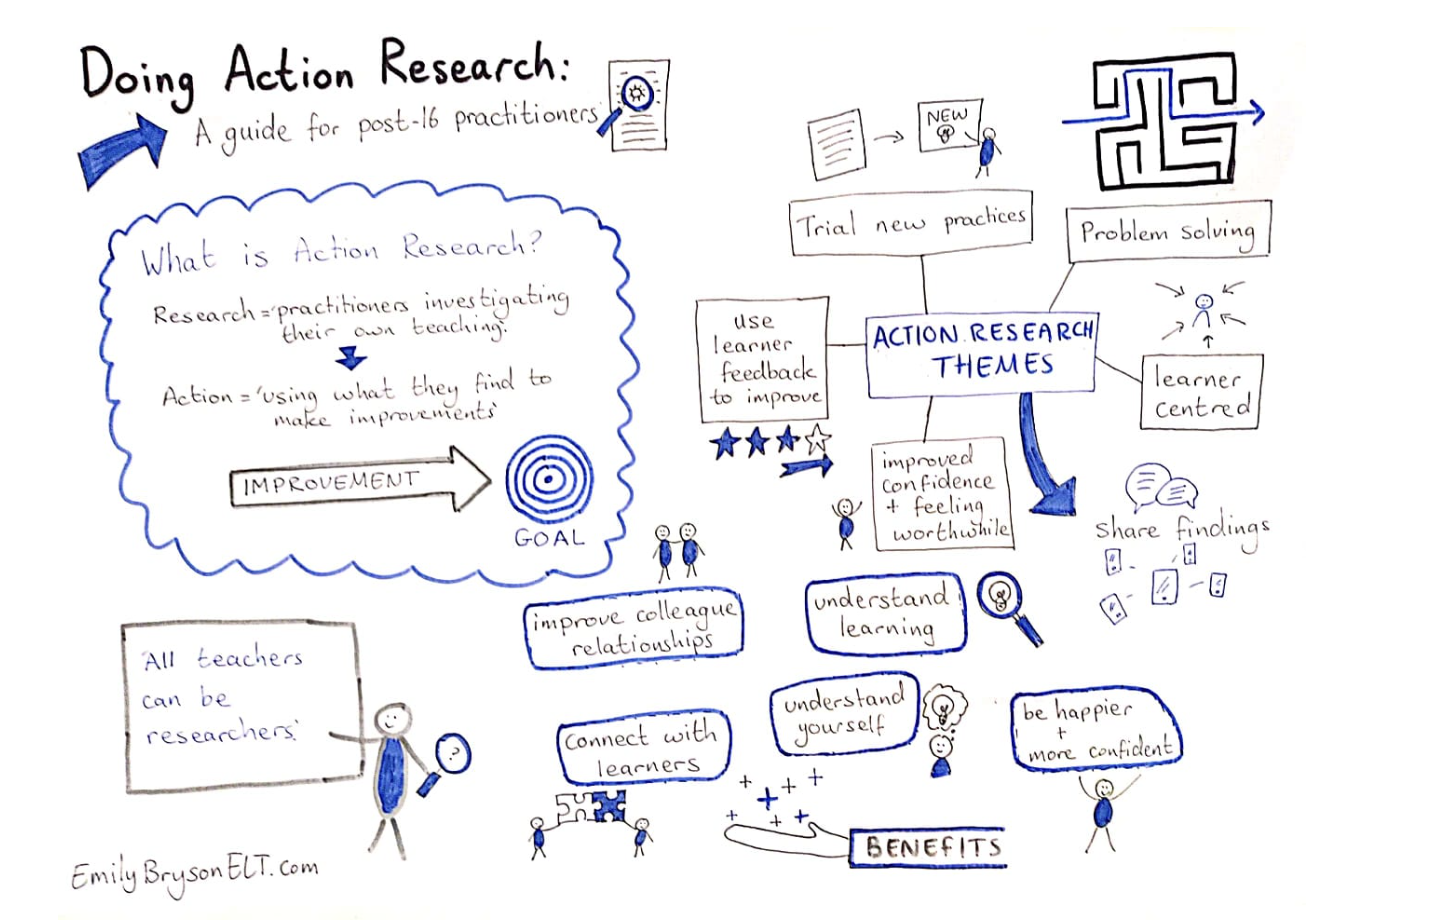 Doing Action Research:
A guide for post-16 practitioners
What is Action Research?
Research = 'practitioners investigating
their own teaching'.
Action = 'using what they find to
make improvements'
IMPROVEMENT
GOAL
'All teachers
can be
researchers'.
EmilyBrysonELT.com
NEW
Trial new practices
Problem solving
use
learner
feedback
to improve
ACTION RESEARCH
THEMES
learner
centred
improved
confidence
+ feeling
worthwhile
share findings
improve colleague
relationships
understand
learning
understand
yourself
connect with
learners
be happier
+
more confident
BENEFITS
?